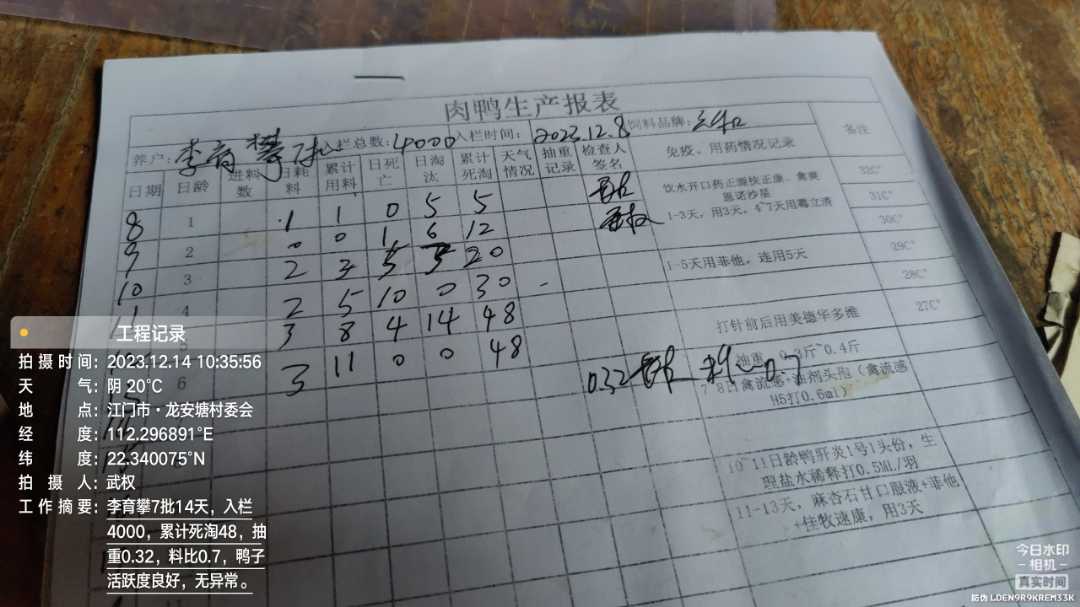 肉鸭生产报表
养户: 李育攀7批 入栏总数: 4000 入栏时间: 2023.12.8 饲料品牌:
日期 日龄 进料数 日耗料 累计用料 日死亡 日淘汰 累计死淘 天气情况 抽重记录 检查人签名 免疫、用药情况记录 备注
8 1 1 1 0 5 5 32C°
饮水开口药正源校正康、禽爽
恩诺沙星
9 2 0 0 1 6 12 1-3天，用3天，4-7天用霉立清 31C°
30C°
10 3 2 3 5 3 20 1-5天用菲他，连用5天 29C°
11 4 2 5 10 0 30 28C°
3 8 4 14 48 打针前后用美德华多维 27C°
6 3 11 0 0 48 0.32 料比0.7
0.3斤~0.4斤
8日禽流感+油剂头孢（禽流感
H5打0.6ml）
10~11日龄鸭肝炎1号1头份，生
理盐水稀释打0.5ML/羽
11-13天，麻杏石甘口服液+菲他
+佳牧速康，用3天
工程记录
拍摄时间: 2023.12.14 10:35:56
天气: 阴 20°C
地点: 江门市·龙安塘村委会
经度: 112.296891°E
纬度: 22.340075°N
拍摄人: 武权
工作摘要: 李育攀7批14天，入栏
4000，累计死淘48，抽
重0.32，料比0.7，鸭子
活跃度良好，无异常。
今日水印
-相机-
真实时间
防伪 LDEN9R9KREM33K